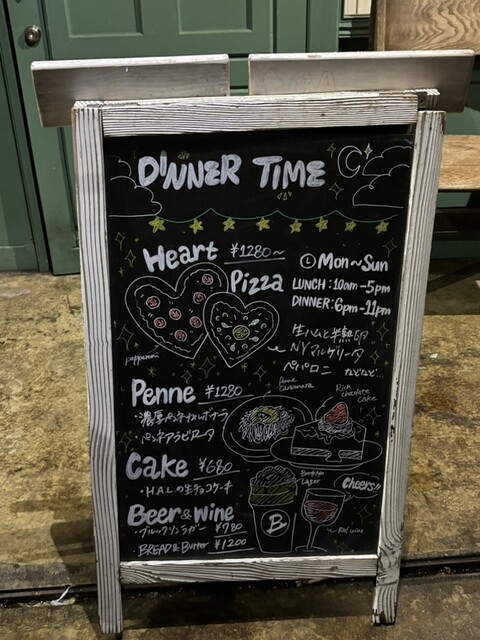 DINNER TIME
Heart ¥1280~
Pizza
Mon~Sun
LUNCH:10am-5pm
DINNER:6pm-11pm
生ハムと半熟卵
NYマルゲリータ
ペパロニ などなど...
pepperoni
Penne ¥1280
・濃厚ペンネカルボナーラ
・ペンネアラビアータ
Penne Carbonara
Rich chocolate Cake
Cake ¥680
・HALの生チョコケーキ
Brooklyn Lager
Cheers!!
Beer&Wine
・ブルックリンラガー ¥780
・BREAD&Butter ¥1200
B
Red wine